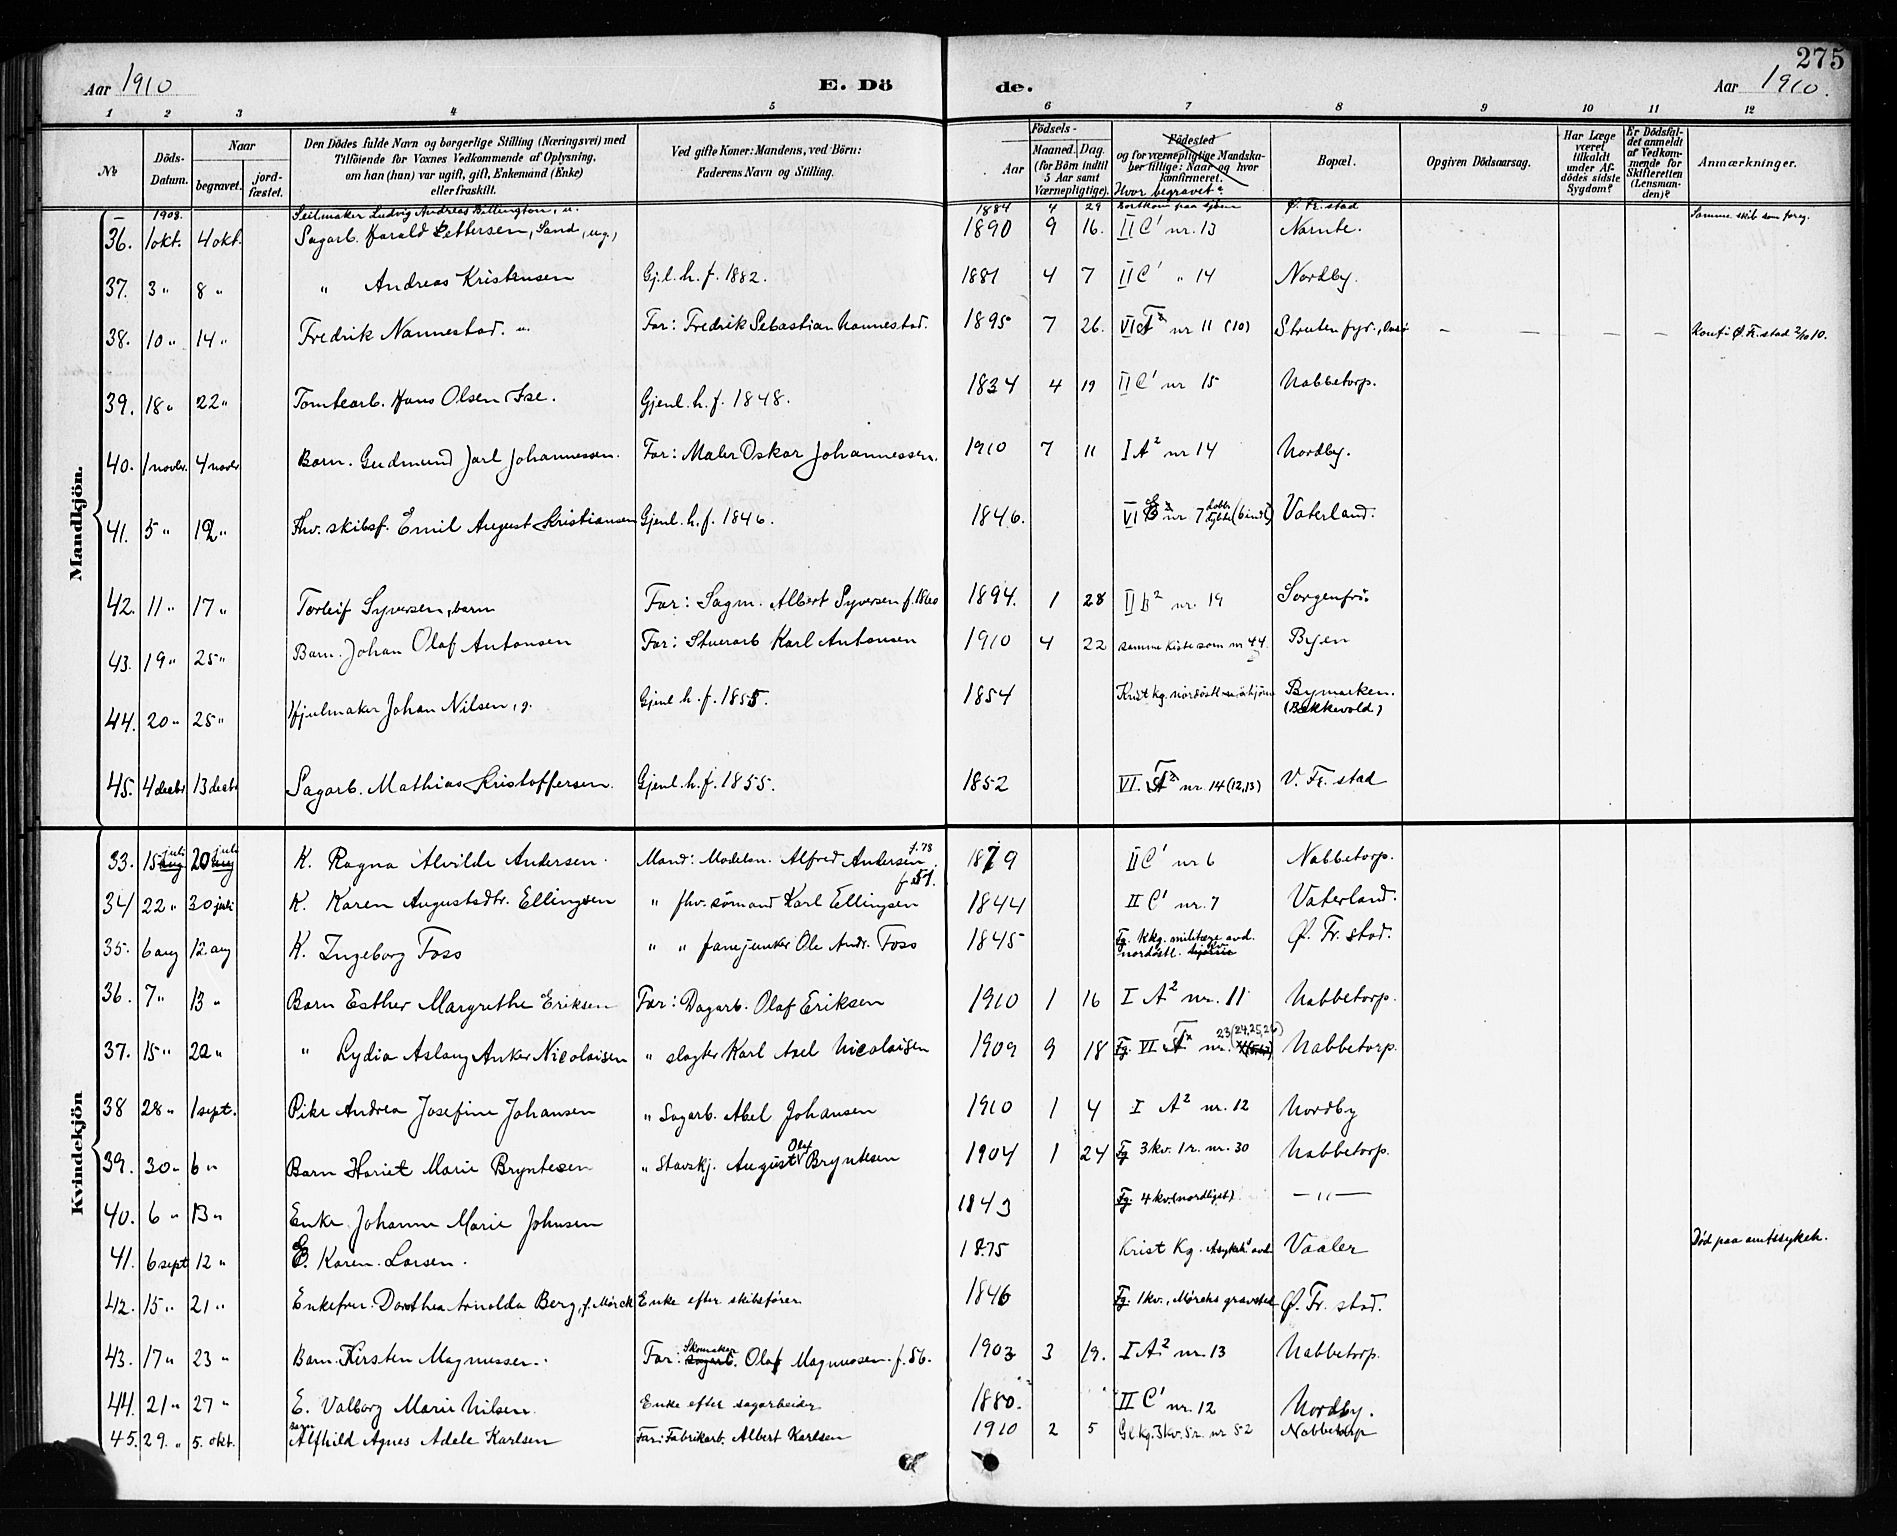 275
Aar 1910 E. Dö de. Aar 1910.
1 2 3 4 5 6 7 8 9 10 11 12
No
Döds-Datum.
Naar
begravet.
jord-fæstet.
Den Dödes fulde Navn og borgerlige Stilling (Næringsvei) med
Tilföiende for Voxnes Vedkommende af Oplysning,
om han (hun) var ugift, gift, Enkemand (Enke)
eller fraskilt.
Ved gifte Koner: Mandens, ved Börn:
Faderens Navn og Stilling.
Födsels-
Aar
Maaned. Dag.
(for Börn indtil
5 Aar samt
Værnepligtige).
Födested
og for værnepligtige Mandska-
ber tillige: Naar og hvor
konfirmeret.
Hvor begravet?
Bopæl.
Opgiven Dödsaarsag.
Har Læge
været
tilkaldt
under Af-
dödes sidste
Sygdom?
Er Dödsfal-
det anmeldt
af Vedkom-
mende for
Skifteretten
(Lensman-
den)?
Anmærkninger.
Mandkjön.
– 1908. Seilmaker Ludvig Andreas Billington, u. 1884 4 29 Bortkom paa sjøen Ø. Fr. stad Samme skib som foreg.
36. 1 okt. 4 okt. Sagarb. Harald Pettersen, Sand, ug., 1890 9 16. II C' nr. 13 Narnte.
37. 3 " 8 " " Andreas Kristensen Gj.l. h. f. 1882. 1881 4 7 II C' " 14 Nordby.
38. 10 " 14 " Fredrik Nannestad. u. Far: Fredrik Sebastian Nannestad. 1895 7 26. nr 11 (10) Struten fyr, Onsö – – – – Konf. i Ø. Fr. stad 2/10 10.
39. 18 " 22 " Tomtearb. Hans Olsen Ise. Gjenl. h. f. 1848. 1834 4 19 II C' nr 15 Nabbetorp.
40. 1 novbr. 4 novbr. Barn. Gudmund Jarl Johannessen. Far: Maler Oskar Johannessen. 1910 7 11 I A² nr 14 Nordby.
41. 5 " 12 " Fhv. skibsf. Emil August Kristiansen Gjenl. h. f. 1846. 1846. nr 7 Vaterland.
42. 11 " 17 " Torleif Syversen, barn Far: Sagm. Albert Syversen f. 1860 1894. 1 28 II b² nr. 19 Sorgenfri.
43. 19 " 25 " Barn. Johan Olaf Antonsen Far: Stuerarb Karl Antonsen 1910 4 22 samme kiste som nr 44. Byen
44. 20 " 25 " Hjulmaker Johan Nilsen, g. Gjenl h. f. 1855. 1854 Krist kg. nordöstl. Bymarken. (Bakkevold)
45. 4 decbr 13 decbr Sagarb. Mathias Kristoffersen. Gjenl. h. f. 1855. 1852 VI. nr. 14 (12,13) V. Fr. stad
Kvindekjön
33. 15 aug juli 20 aug juli K. Ragna Alvilde Andersen. Mand: Modelsn. Alfred Andersen f. 78 1879 II C' nr 6 Nabbetorp.
34 22 " 30 juli K. Karen Augustadtr. Ellingsen " fhv. sömand Karl Ellingsen f. 51. 1844 II C' nr. 7 Vaterland.
35. 6 aug 12. aug K. Ingeborg Foss " " fanejunker Ole Andr. Foss 1845 Fg. Kkg. militære avd. nordöstl. hjörne kv. Ø. Fr. stad.
36. 7 " 13 " Barn Esther Margrethe Eriksen Far: Dagarb. Olaf Eriksen 1910 1 16 I A² nr. 11 Nabbetorp.
37. 15 " 20 " " Lydia Aslaug Anker Nicolaisen " slagter Karl Axel Nicolaisen 1909 9 18 Fg. VI nr. 23 (24,25,26) Nabbetorp.
38 28 " 1 sept. Pike Andrea Josefine Johansen " Sagarb. Abel Johansen 1910 1 4 I A² nr. 12 Nordby
39. 30 " 6 " Barn Hariet Marie Bryntesen " Stavskj. August Olaf Bryntesen 1904 1 24 Fg 3 kv. 1 r. nr. 30 Nabbetorp.
40. 6 " 13 " Enke Johanne Marie Johnsen 1843 Fg. 4 kv. (nordligst) – " –
41. 6 sept 12 " E. Karen Larsen. 1875 Krist Kg. Asykeh' avd Vaaler Död paa amtssykeh.
42. 15 " 21 " Enkefru. Dorothea Arnolda Berg, f. Mörch Enke efter skibsfører 1846 Fg. 1 kv., Mörchs gravsted Ø. Fr. stad.
43. 17 " 23 " Barn. Kirsten Magnussen. Far: sagarb. Skomaker Olaf Magnussen. f. 86. 1903 3 19. I A² nr. 13 Nabbetorp.
44. 21 " 27 " E. Valborg Marie Nilsen. Enke efter sagarbeider 1880. II C' nr. 12 Nordby.
45. 29. " 5. okt. Barn Alfhild Agnes Adele Karlsen Far: Fabrikarb. Albert Karlsen 1910 2 5 Gl kg. 3 kv. 5 r. nr 52 Nabbetorp